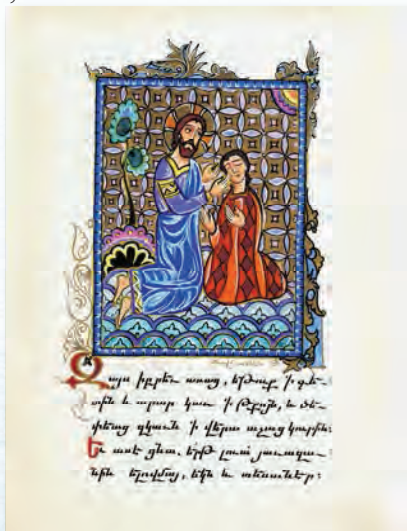 Զայս իբրեւ ասաց, եթուք ՚ի գե-
տին և արար կաւ ՚ի թքոյն, և ծե-
փեաց զկաւն ՚ի վերա աչաց կուրին։
Եւ ասէ ցնա. երթ լուա յաւազա-
նին Սելովմայ, եկն և տեսանէր։